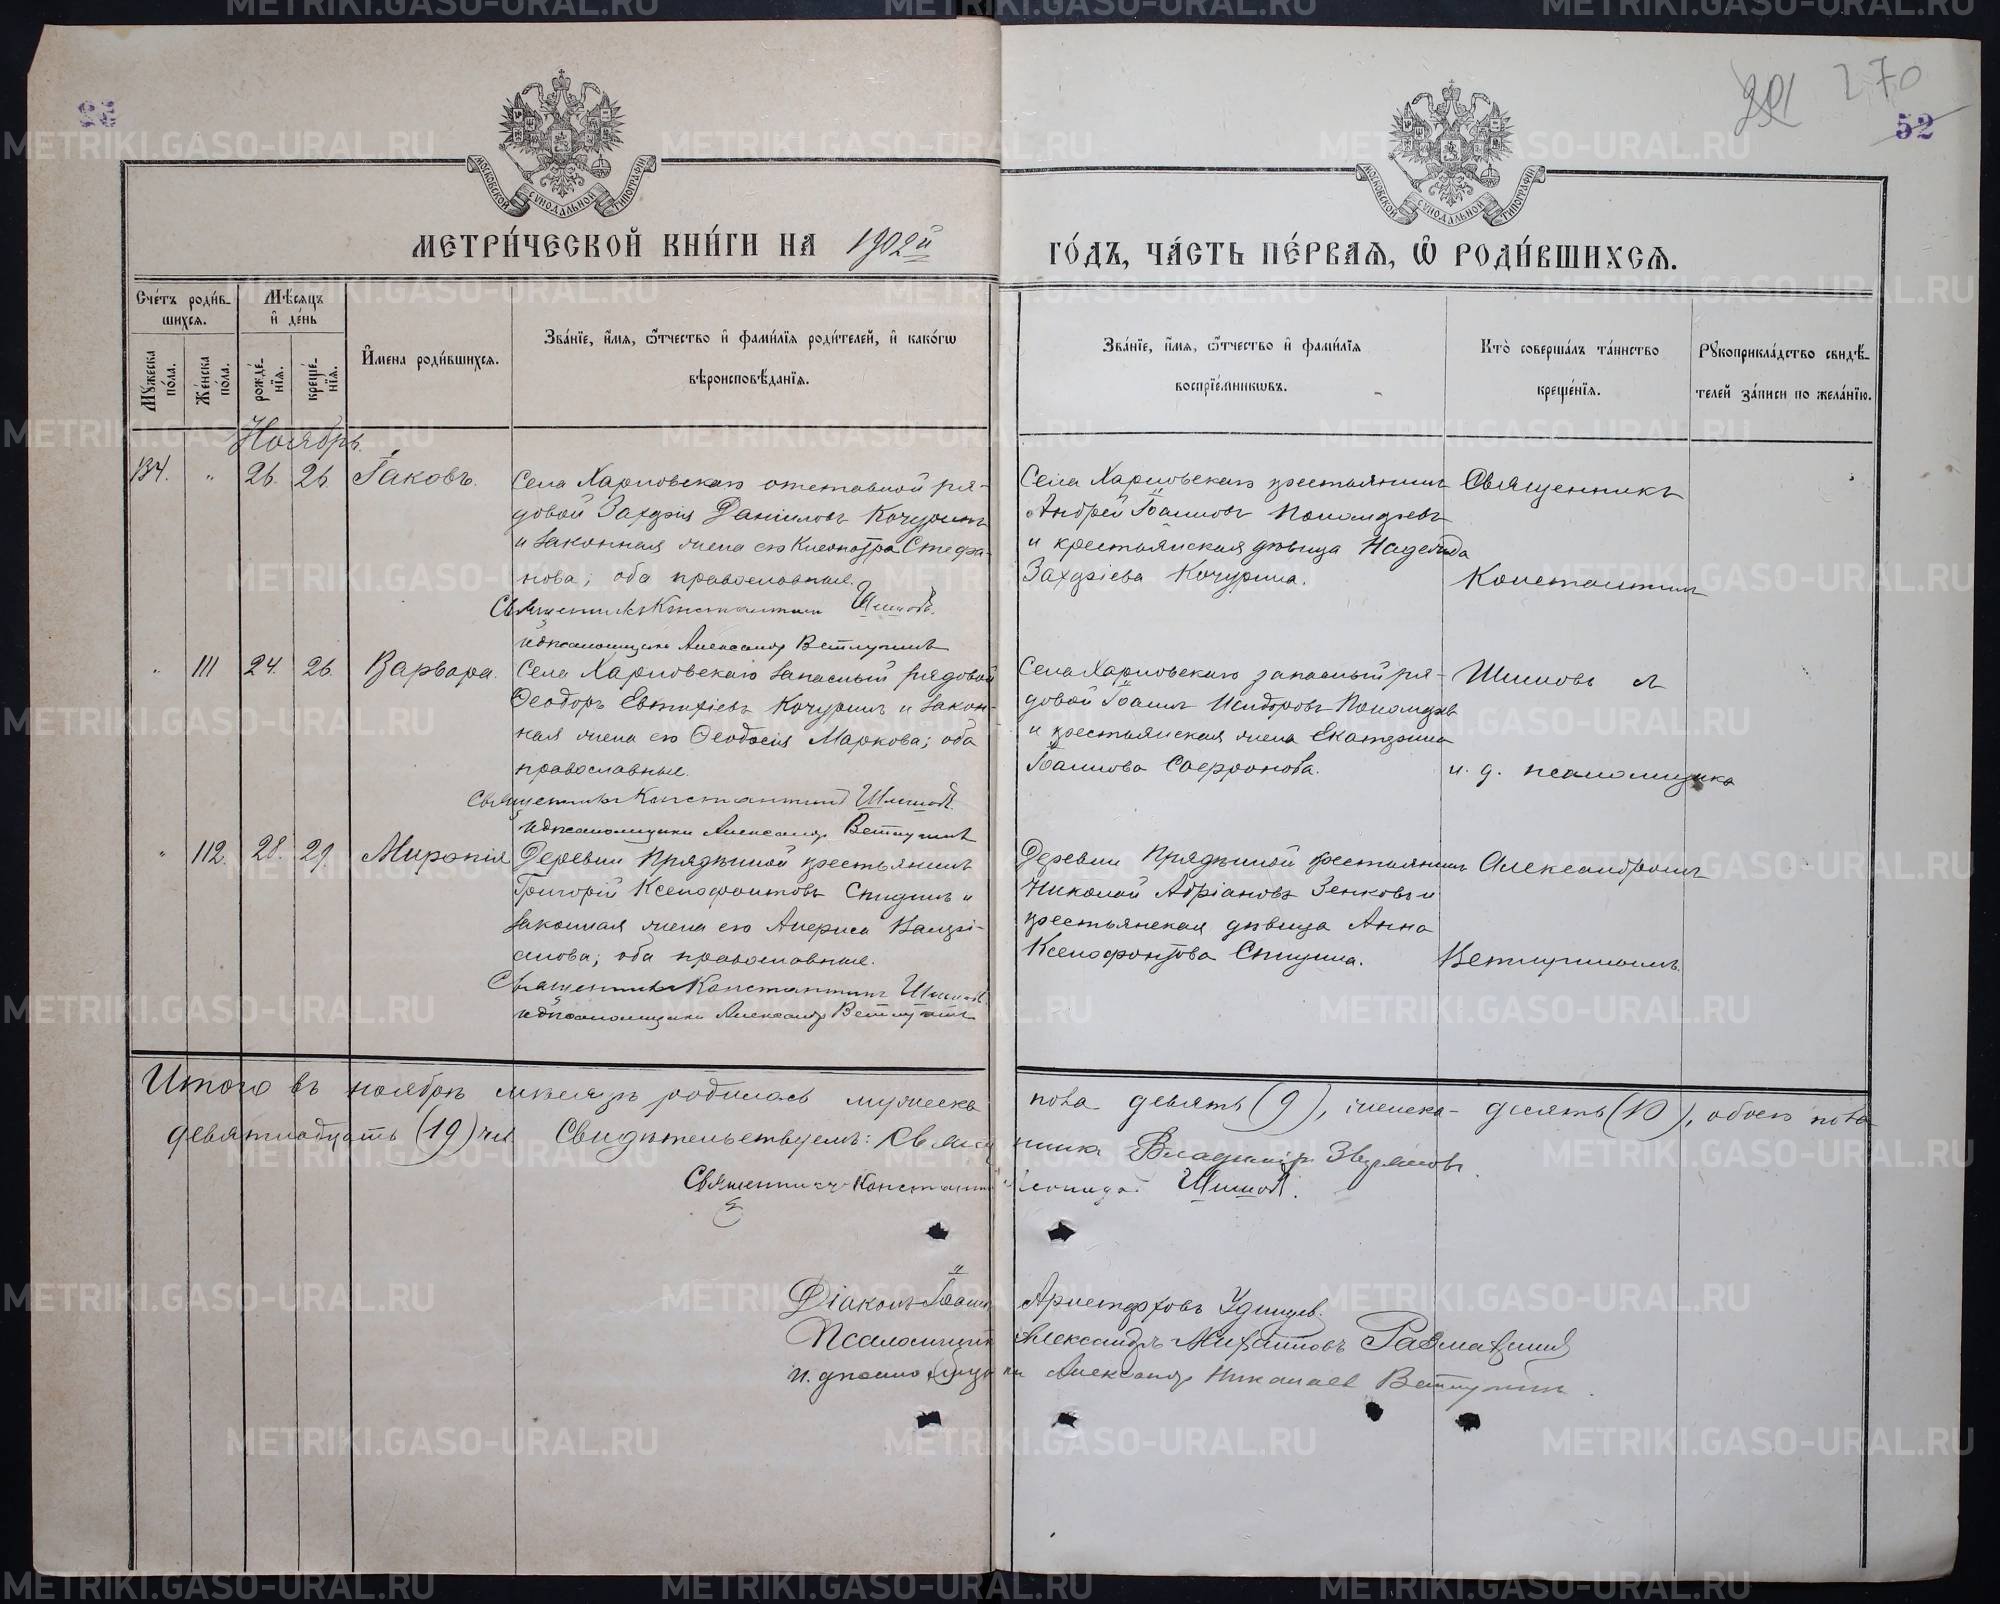 270
52
МОСКОВСКОЙ СѴНОДАЛЬНОЙ ТИПОГРАФІИ
МОСКОВСКОЙ СѴНОДАЛЬНОЙ ТИПОГРАФІИ
МЕТРИ́ЧЕСКОЙ КНИ́ГИ НА 1902й
ГО́ДЪ, ЧА́СТЬ ПЕ́РВАѦ, Ѡ҆ РОДИ́ВШИХСѦ.
Сче́тъ роди́в-
шихсѧ.
Мѣ́сѧцъ
и҆ де́нь
Мꙋжеска по́ла.
Же́нска по́ла.
рожде́-нїѧ.
креще́-нїѧ.
И҆мена роди́вшихсѧ.
Зва́нїе, и҆́мѧ, ѻ҆́тчество и҆ фами́лїѧ роди́телей, и҆ како́гѡ
вѣроисповѣ́данїѧ.
Зва́нїе, и҆́мѧ, ѻ҆́тчество и҆ фами́лїѧ
воспрїе́мникѡвъ.
Кто̀ соверша́лъ та́инство
креще́нїѧ.
Рꙋкоприкла́дство свидѣ́-
телей за́писи по жела́нїю.
Ноябрь.
134. " 26. 26. Іаковъ.
Села Харловскаго отставной ря-
довой Захарія Даніиловъ Кочуринъ
и законная жена его Клеопатра Стефа-
нова; оба православные.
Священникъ Константинъ Шишовъ.
и д псаломщика Александр Ветлугинъ
Села Харловскаго крестьянинъ
Андрей Іоанновъ Пономаревъ
и крестьянская дѣвица Надежда
Захаріева Кочурина.
Священникъ
Константин
" 111 24. 26. Варвара.
Села Харловскаго запасный рядовой
Ѳеодоръ Евтихіевъ Кочуринъ и закон-
ная жена его Ѳеодосія Маркова; оба
православные.
Священникъ Константинъ Шишовъ.
и д псаломщика Александр Ветлугинъ
Села Харловскаго запасный ря-
довой Іоаннъ Исидоровъ Пономарев
и крестьянская жена Екатерина
Іоаннова Сафронова.
Шишовъ
и. д. псаломщика
" 112. 28. 29.
Деревни Прядѣиной крестьянинъ
Григорій Ксенофонтовъ Спицинъ и
законная жена его
оба православные.
Священникъ Константинъ Шишовъ
и д псаломщика Александр Ветлугинъ
Деревни Прядѣиной крестьянинъ
Николай Адріановъ Зенковъ и
крестьянская дѣвица Анна
Ксенофонтова Спицина.
Александромъ
Ветлугиномъ.
Итого въ ноябрѣ мѣсяцѣ родилось мужеска пола девять (9), женска десять (10), обоего пола
девятнадцать (19) чел. Свидѣтельствуемъ: Священника Владиміръ
Священникъ Константинъ Леонидов Шишовъ.
Діаконъ Іоаннъ Аристарховъ Удинцев.
Псаломщикъ Александръ Михайловъ
и. д псаломщика Александр Николаев Ветлугинъ.